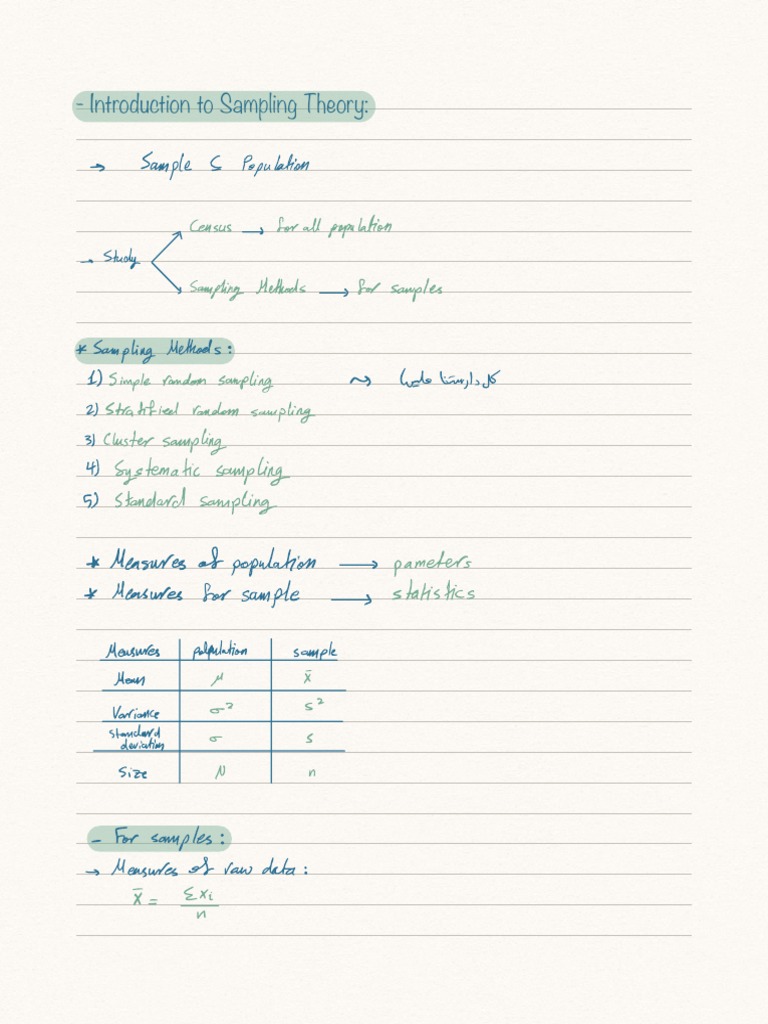 - Introduction to Sampling Theory:
→ Sample ⊆ Population
Census → for all population
→ Study
Sampling Methods → for samples
* Sampling Methods:
1) Simple random sampling ⇝ كل دارستنا عليها
2) Stratified random sampling
3) Cluster sampling
4) Systematic sampling
5) Standard sampling
* Measures of population → pameters
* Measures for sample → statistics
Measures palpulation sample
Mean μ x̄
Variance σ² s²
standard deviation σ s
Size N n
- For samples:
→ Measures of raw data:
x̄ = Σxi / n